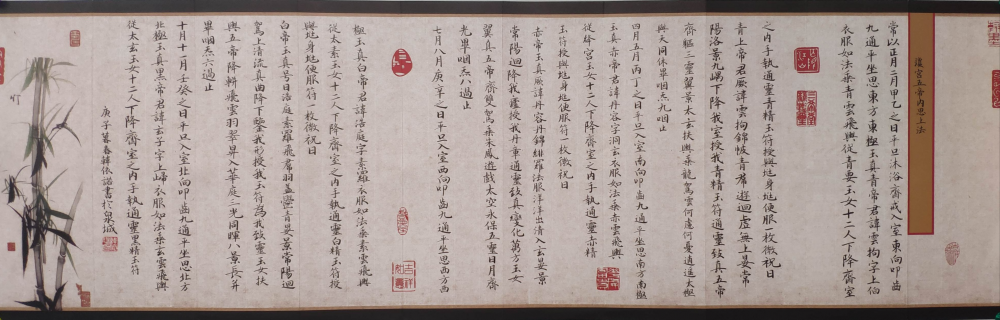 瓊宮五帝內思上法
常以正月二月甲乙之日平旦沐浴齋戒入室東向叩齒
九通平坐思東方東極玉真青帝君諱雲拘字上伯
衣服如法乘青雲飛輿從青要玉女十二人下降齋室
之內手執通靈青精玉符授與兆身兆便服一枚微祝曰
青上帝君厥諱雲拘錦帔青裙遊迴虛無上晏常
陽洛景九嵎下降我室授我青精玉符通靈致真五帝
齊軀三靈翼景太玄扶輿乘龍駕雲何慮何憂逍遙太極
與天同休畢咽炁九咽止
四月五月丙丁之日平旦入室南向叩齒九通平坐思南方南極
玉真赤帝君諱丹容字洞玄衣服如法乘赤雲飛輿
從絳宮玉女十二人下降齋室之內手執通靈赤精
玉符授與兆身兆便服符一枚微祝曰
赤帝玉真厥諱丹容丹錦緋羅法服洋洋出清入玄晏景
常陽迴降我廬授我丹章通靈致真變化萬方玉女
翼真五帝齊雙駕乘朱鳳遊戲太空永保五靈日月齊
光畢咽炁八過止
七月八月庚辛之日平旦入室西向叩齒九通平坐思西方西
極玉真白帝君諱浩庭字素羅衣服如法乘素雲飛輿
從太素玉女十二人下降齋室之內手執通靈白精玉符授
與兆身兆便服符一枚微祝曰
白帝玉真号曰浩庭素羅飛裙羽蓋鬱青晏景常陽迴
駕上清流真曲降下鑒我形授我玉符為我致靈玉女扶
輿五帝降軿飛雲羽翠昇入華庭三光同暉八景長并
畢咽炁六過止
十月十一月壬癸之日平旦入室北向叩齒九通平坐思北方
北極玉真黑帝君諱玄子字上歸衣服如法乘玄雲飛輿
從太玄玉女十二人下降齋室之內手執通靈黑精玉符
庚子暮春韓依諾書於泉城